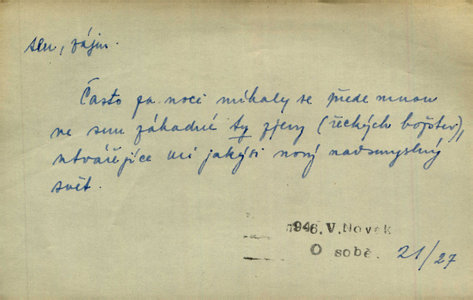 sen, zájm.
Často za noci míhaly se přede mnou
ve snu záhadné ty zjevy (řeckých božstev),
utvářejíce mi jakýsi nový nadsmyslný
svět.
1946. V. Novák
O sobě. 21/27